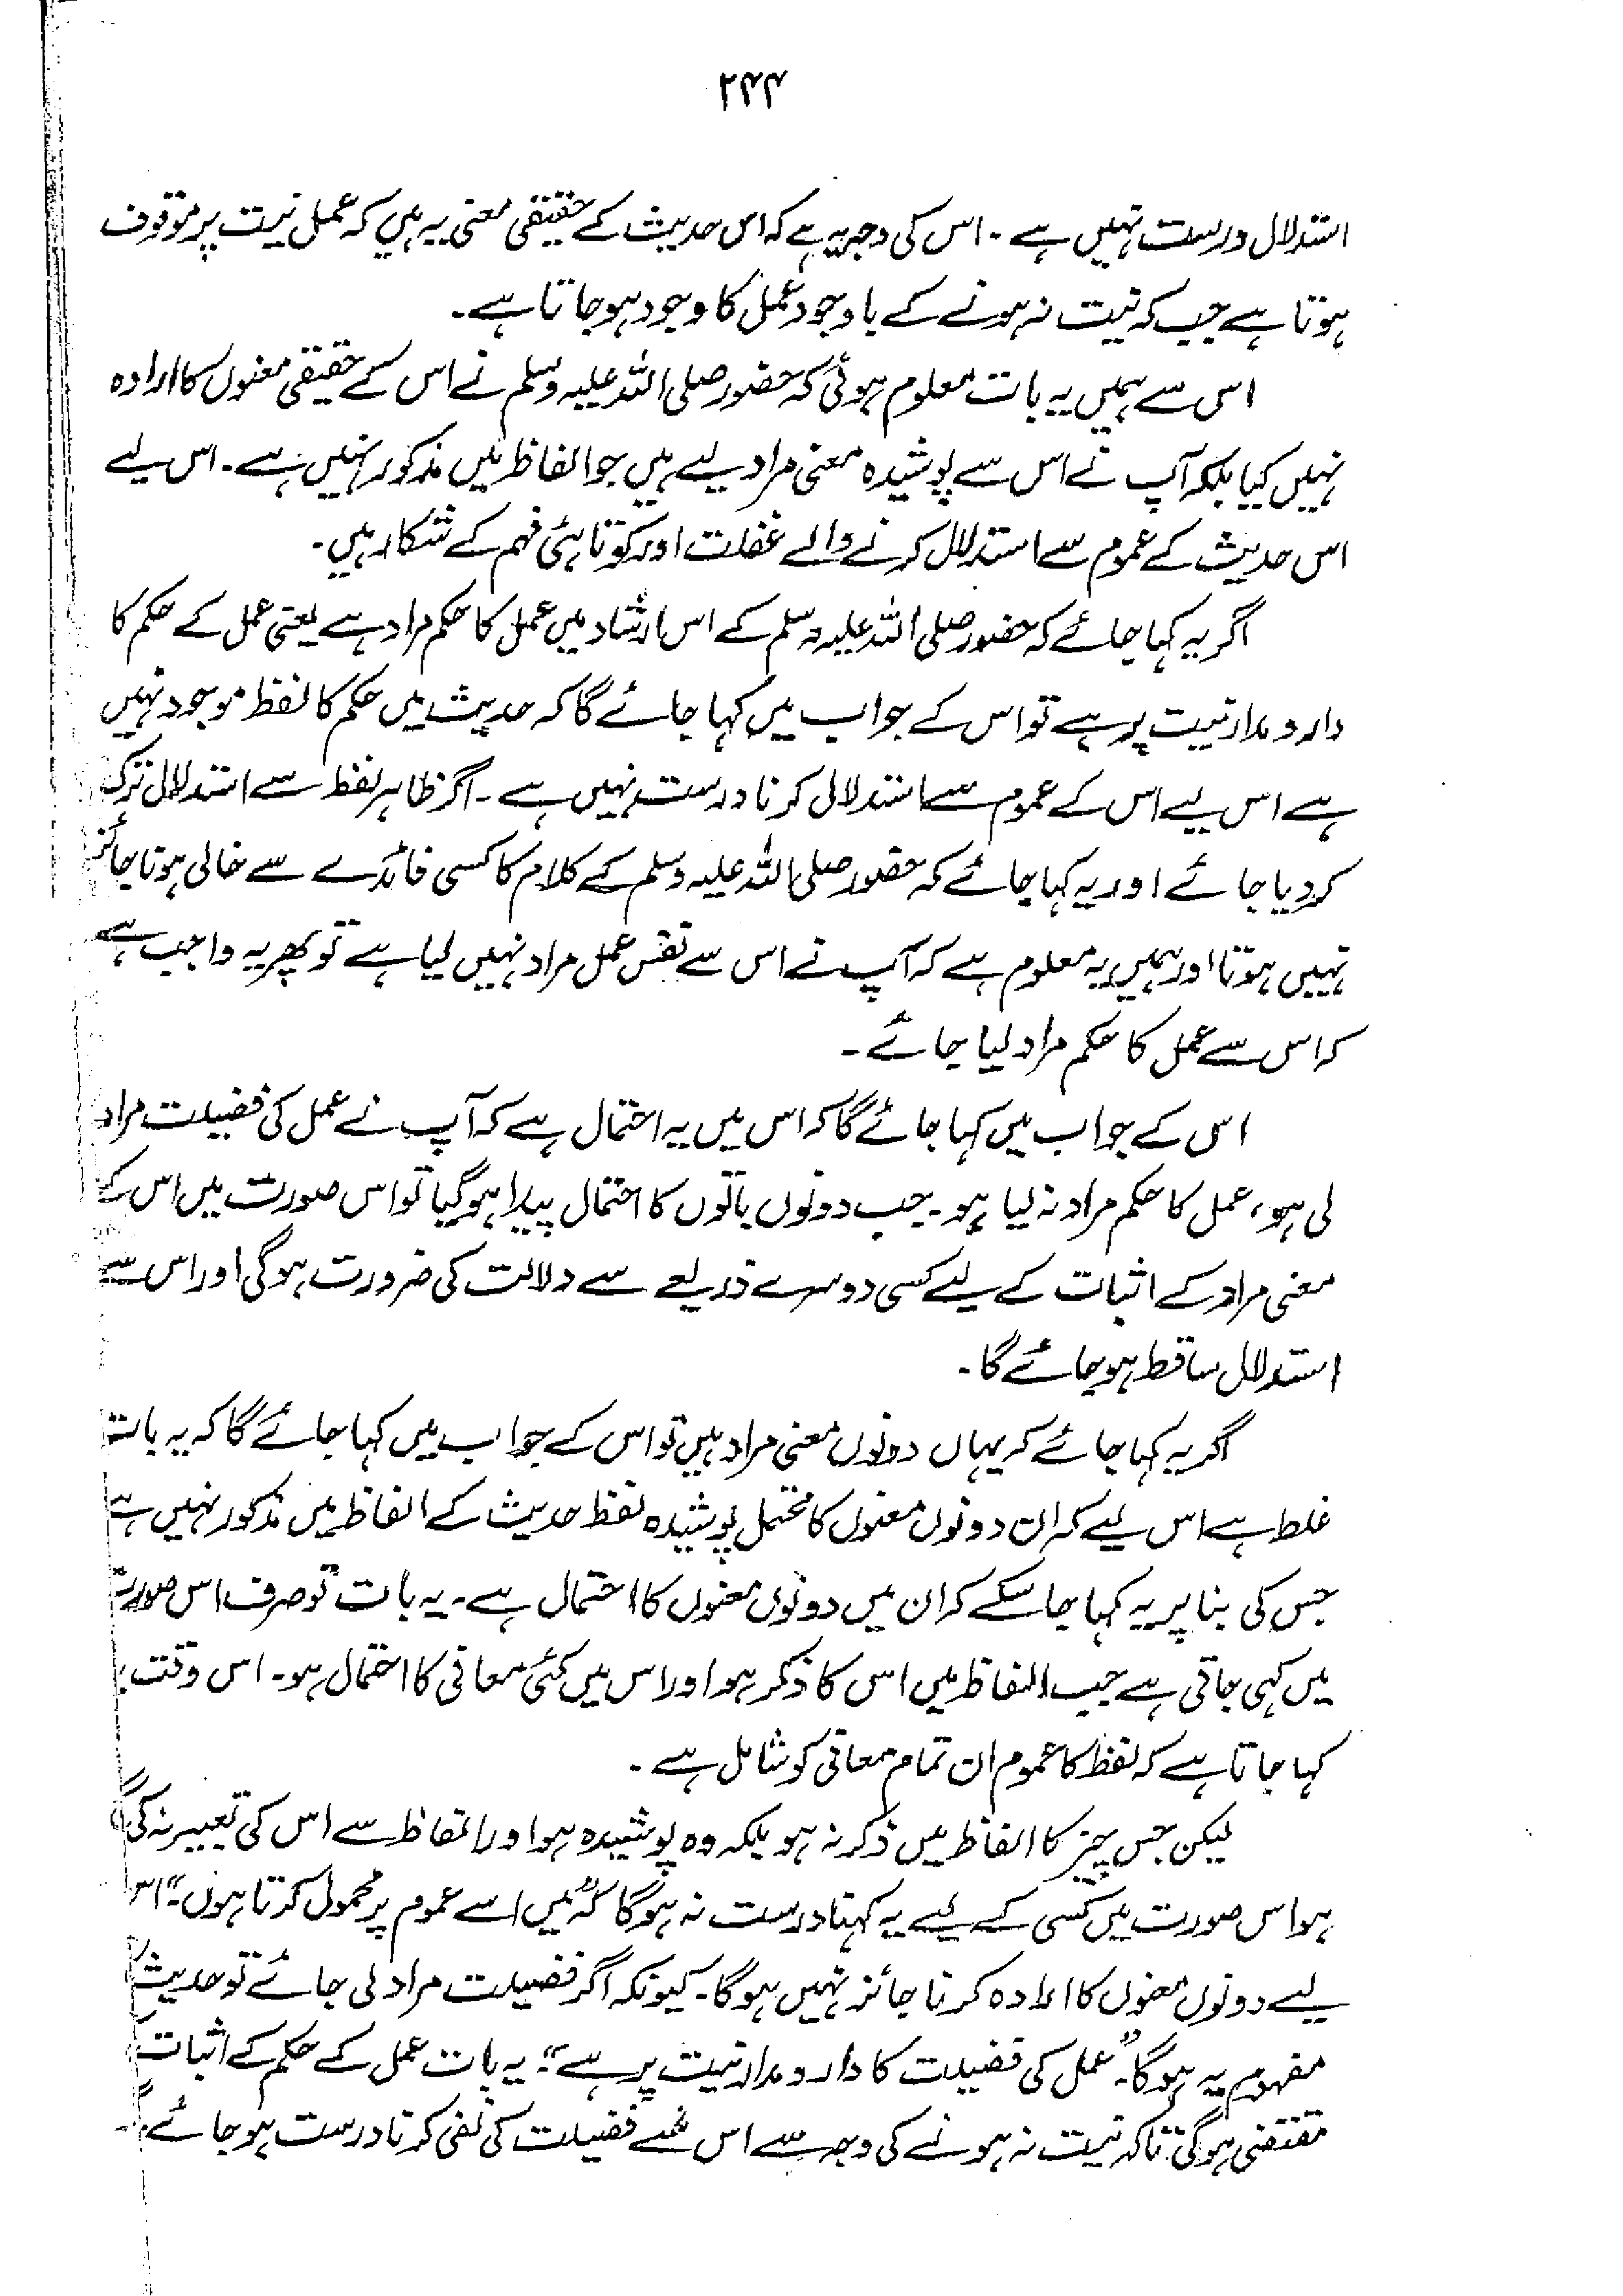 ۲۴۴
استدلال درست نہیں ہے۔ اس کی وجہ یہ ہے کہ اس حدیث کے حقیقی معنی یہ ہیں کہ عمل نیت پر موقوف
ہوتا ہے جب کہ نیت نہ ہونے کے باوجود عمل کا وجود ہو جاتا ہے۔
اس سے ہمیں یہ بات معلوم ہوئی کہ حضور صلی اللہ علیہ وسلم نے اس کے حقیقی معنوں کا ارادہ
نہیں کیا بلکہ آپ نے اس سے پوشیدہ معنی مراد لیے ہیں جو الفاظ میں مذکور نہیں ہے۔ اس لیے
اس حدیث کے عموم سے استدلال کرنے والے غفلت اور کوتاہئ فہم کے شکار ہیں۔
اگر یہ کہا جائے کہ حضور صلی اللہ علیہ وسلم کے اس ارشاد میں عمل کا حکم مراد ہے یعنی عمل کے حکم کا
دار و مدار نیت پر ہے تو اس کے جواب میں کہا جائے گا کہ حدیث میں حکم کا لفظ موجود نہیں
ہے اس لیے اس کے عموم سے استدلال کرنا درست نہیں ہے۔ اگر ظاہر لفظ سے استدلال ترک
کر دیا جائے اور یہ کہا جائے کہ حضور صلی اللہ علیہ وسلم کے کلام کا کسی فائدے سے خالی ہونا جائز
نہیں ہوتا اور ہمیں یہ معلوم ہے کہ آپ نے اس سے نفس عمل مراد نہیں لیا ہے تو پھر یہ واجب ہے
کہ اس سے عمل کا حکم مراد لیا جائے۔
اس کے جواب میں کہا جائے گا کہ اس میں یہ احتمال ہے کہ آپ نے عمل کی فضیلت مراد
لی ہو، عمل کا حکم مراد نہ لیا ہو۔ جب دونوں باتوں کا احتمال پیدا ہو گیا تو اس صورت میں اس کے
معنی مراد کے اثبات کے لیے کسی دوسرے ذریعے سے دلالت کی ضرورت ہوگی اور اس سے
استدلال ساقط ہو جائے گا۔
اگر یہ کہا جائے کہ یہاں دونوں معنی مراد ہیں تو اس کے جواب میں کہا جائے گا کہ یہ بات
غلط ہے اس لیے کہ ان دونوں معنوں کا محتمل پوشیدہ لفظ حدیث کے الفاظ میں مذکور نہیں ہے
جس کی بنا پر یہ کہا جا سکے کہ ان میں دونوں معنوں کا احتمال ہے۔ یہ بات تو صرف اس صورت
میں کہی جاتی ہے جب الفاظ میں اس کا ذکر ہو اور اس میں کئی معانی کا احتمال ہو۔ اس وقت
کہا جاتا ہے کہ لفظ کا عموم ان تمام معانی کو شامل ہے۔
لیکن جس چیز کا الفاظ میں ذکر نہ ہو بلکہ وہ پوشیدہ ہو اور الفاظ سے اس کی تعبیر نہ کی
ہو اس صورت میں کسی کے لیے یہ کہنا درست نہ ہوگا کہ "میں اسے عموم پر محمول کرتا ہوں۔"
لیے دونوں معنوں کا ارادہ کرنا جائز نہیں ہوگا۔ کیونکہ اگر فضیلت مراد لی جائے تو حدیث
مفہوم یہ ہوگا۔ "عمل کی فضیلت کا دار و مدار نیت پر ہے"۔ یہ بات عمل کے حکم کے اثبات
مقتضی ہوگی تاکہ نیت نہ ہونے کی وجہ سے اس سے فضیلت کی نفی کرنا درست ہو جائے۔